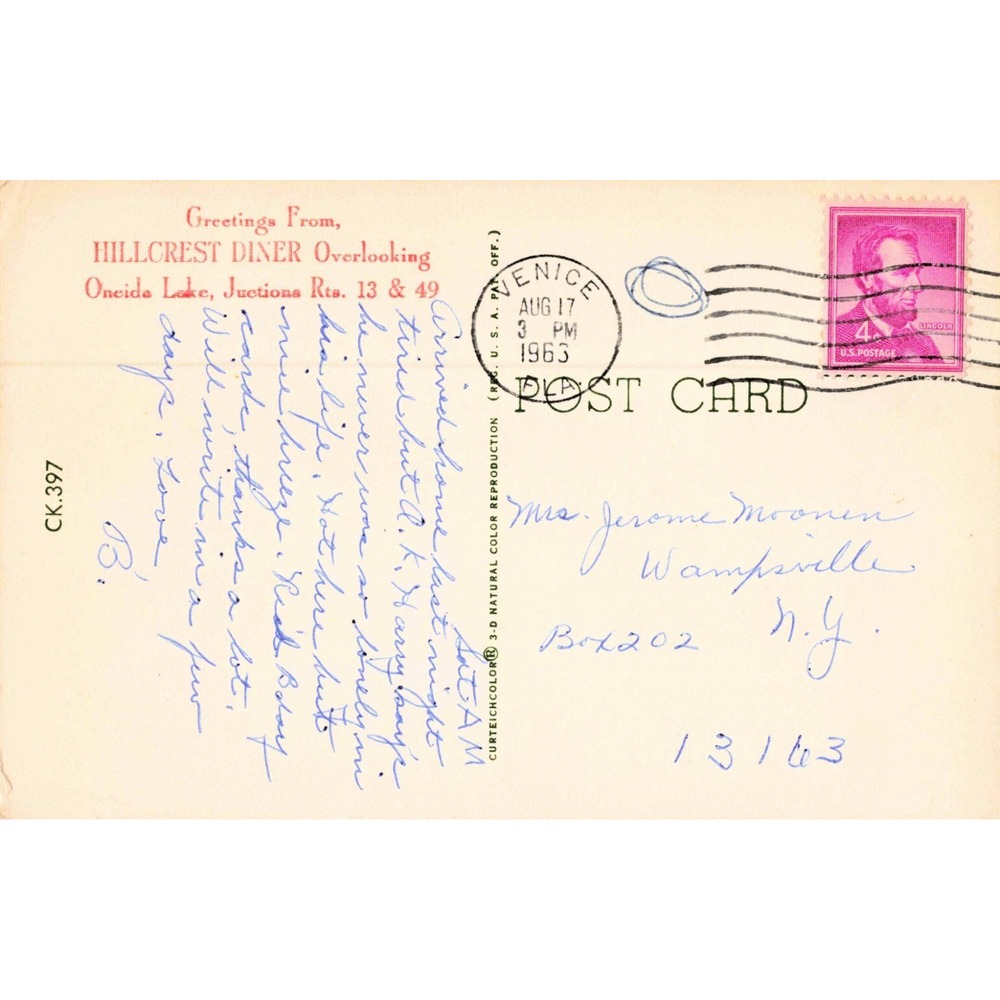 Greetings From,
HILLCREST DINER Overlooking
Oneida Lake, Juctions Rts. 13 & 49
Sat. AM
Arrived home last night
tired but O.K. Harry says
he never was so lonely in
his life. Hot here but
nice breeze. Rec'd Bday
cards, thanks a lot.
Will write in a few
days. Love
B.
CK.397
CURTEICHCOLOR® 3-D NATURAL COLOR REPRODUCTION (REG. U. S. A. PAT. OFF.)
VENICE
AUG 17
3 PM
1963
FLA
4¢
LINCOLN
U.S. POSTAGE
POST CARD
Mrs. Jerome Moonen
Wampsville
N.Y.
Box 202
13163